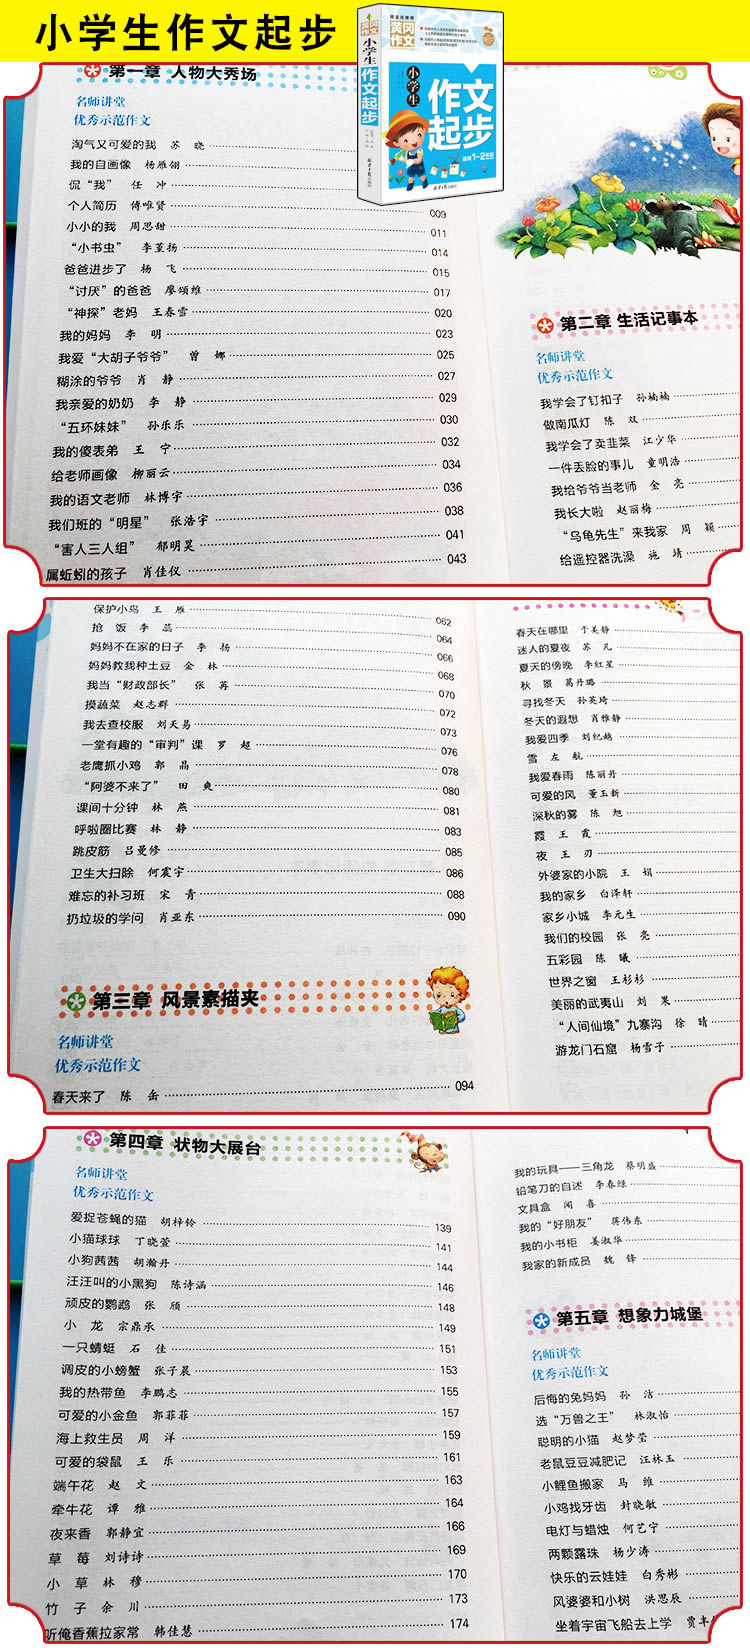 小学生作文起步
黄冈作文
小学生
作文起步
小学生
作文
起步
适用1-2年级
第一章 人物大秀场
名师讲堂
优秀示范作文
淘气又可爱的我 苏 晓
我的自画像 杨雁翎
侃“我” 任 冲
个人简历 傅唯贤 009
小小的我 周思甜 011
“小书虫” 李堇扬 014
爸爸进步了 杨 飞 015
“讨厌”的爸爸 廖颂维 017
“神探”老妈 王春雪 020
我的妈妈 李 明 023
我爱“大胡子爷爷” 曾 娜 025
糊涂的爷爷 肖 静 027
我亲爱的奶奶 李 静 029
“五环妹妹” 孙乐乐 030
我的傻表弟 王 宁 032
给老师画像 柳丽云 034
我的语文老师 林博宇 036
我们班的“明星” 张浩宇 038
“害人三人组” 郁明昊 041
属蚯蚓的孩子 肖佳仪 043
第二章 生活记事本
名师讲堂
优秀示范作文
我学会了钉扣子 孙楠楠
做南瓜灯 陈 双
我学会了卖韭菜 江少华
一件丢脸的事儿 童明浩
我给爷爷当老师 金 亮
我长大啦 赵丽梅
“乌龟先生”来我家 周 颖
给遥控器洗澡 施 靖
保护小鸟 王 雁 062
抢 饭 李 蕊 064
妈妈不在家的日子 李 扬 066
妈妈教我种土豆 金 林 068
我当“财政部长” 张 苒 070
摸蔬菜 赵志群 072
我去查校服 刘天易 073
一堂有趣的“审判”课 罗 超 076
老鹰抓小鸡 郭 晶 078
“阿婆不来了” 田 爽 080
课间十分钟 林 燕 081
呼啦圈比赛 林 静 083
跳皮筋 吕曼修 085
卫生大扫除 何震宇 086
难忘的补习班 宋 青 088
扔垃圾的学问 肖亚东 090
第三章 风景素描夹
名师讲堂
优秀示范作文
春天来了 陈 岳 094
春天在哪里 于美静
迷人的夏夜 苏 凡
夏天的傍晚 李红星
秋 景 葛丹璐
寻找冬天 孙英琦
冬天的遐想 肖雅静
我爱四季 刘纪越
雪 左 航
我爱春雨 陈丽丹
可爱的风 董玉新
深秋的雾 陈 旭
霞 王 霞
夜 王 刃
外婆家的小院 王 娟
我的家乡 白泽轩
家乡小城 李元生
我们的校园 张 亮
五彩园 陈 曦
世界之窗 王杉杉
美丽的武夷山 刘 果
“人间仙境”九寨沟 徐 晴
游龙门石窟 杨雪子
第四章 状物大展台
名师讲堂
优秀示范作文
爱捉苍蝇的猫 胡梓铃 139
小猫球球 丁晓萱 141
小狗茜茜 胡瀚丹 144
汪汪叫的小黑狗 陈诗涵 146
顽皮的鹦鹉 张 颀 148
小 龙 宗鼎承 149
一只蜻蜓 石 佳 151
调皮的小螃蟹 张子晨 153
我的热带鱼 李鹏志 155
可爱的小金鱼 郭菲菲 157
海上救生员 周 洋 159
可爱的袋鼠 王 乐 161
端午花 赵 文 163
牵牛花 谭 雅 164
夜来香 郭静宜 166
草 莓 刘诗诗 169
小 草 林 穆 170
竹 子 余 川 173
听俺香蕉拉家常 韩佳慧 174
我的玩具——三角龙 蔡明盛
铅笔刀的自述 李春绿
文具盒 闻 喜
我的“好朋友” 蒋伟东
我的小书柜 姜淑华
我家的新成员 魏 锋
第五章 想象力城堡
名师讲堂
优秀示范作文
后悔的兔妈妈 孙 洁
选“万兽之王” 林淑怡
聪明的小猫 赵梦莹
老鼠豆豆减肥记 汪林玉
小鲤鱼搬家 马 维
小鸡找牙齿 封晓敏
电灯与蜡烛 何艺宁
两颗露珠 杨少涛
快乐的云娃娃 白秀彬
风婆婆和小树 洪思辰
坐着宇宙飞船去上学